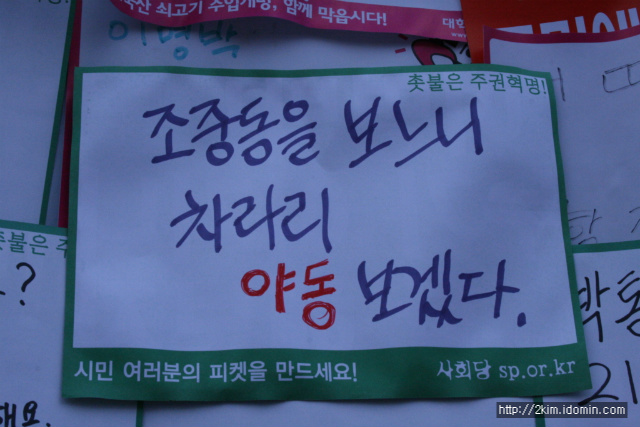 산 쇠고기 수입개방, 함께 막읍시다!
대학
www.
이명박
촛불은 주권혁명!
조중동을 보느니
차라리
야동 보겠다.
시민 여러분의 피켓을 만드세요!
사회당 sp.or.kr
촛불은 주
?
해요.
박통
21
http://2kim.idomin.com